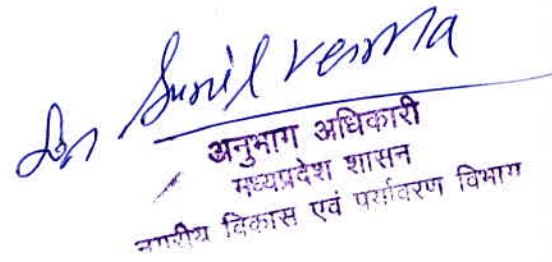 Sunil Verma
अनुभाग अधिकारी
मध्यप्रदेश शासन
नगरीय विकास एवं पर्यावरण विभाग